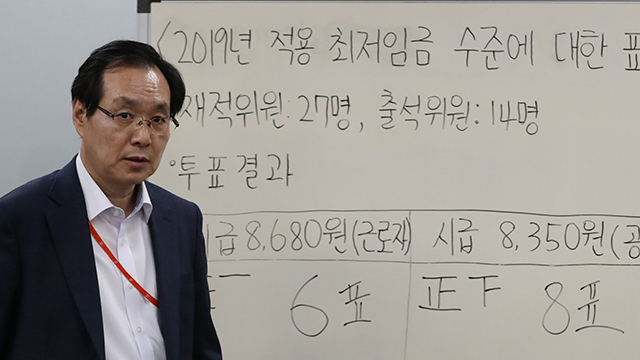 <2019년 적용 최저임금 수준에 대한 표
재적위원: 27명, 출석위원: 14명
투표결과
시급 8,680원(근로자) 시급 8,350원(공
6표 正下 8표